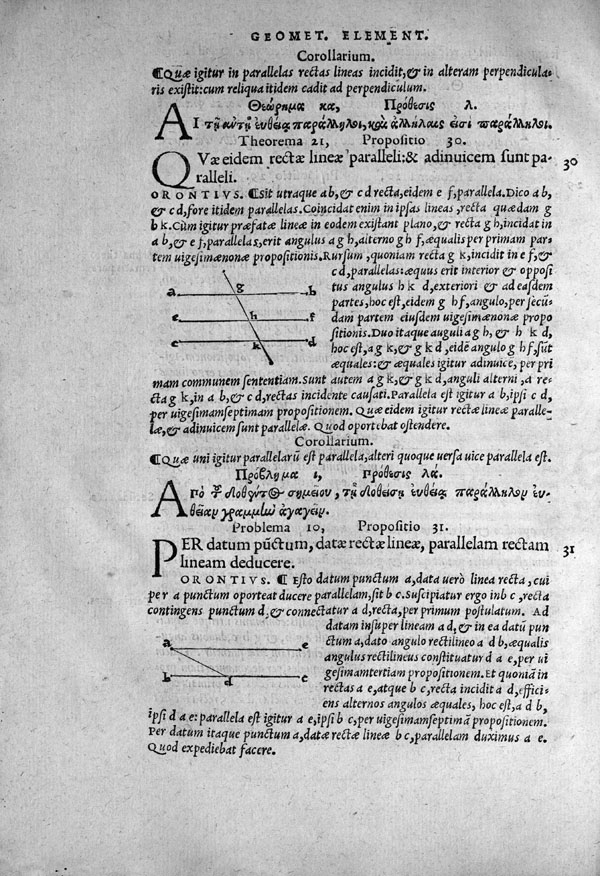 GEOMET. ELEMENT.
Corollarium.
¶Quæ igitur in parallelas rectas lineas incidit,& in alteram perpendicula-
ris existit:cum reliqua itidem cadit ad perpendiculum.
Θεώρημα κα, Πρόθεσις λ.
ΑΙ τῇ αὐτῇ ἐυθείᾳ παράλληλοι, καὶ ἀλλήλαις εἰσὶ παράλληλοι.
Theorema 21, Propositio 30.
QVæ eidem rectæ lineæ paralleli:& adinuicem sunt pa- 30
ralleli.
ORONTIVS. ¶Sit utraque a b,& c d recta,eidem e f,parallela.Dico a b,
& c d,fore itidem parallelas.Coincidat enim in ipsas lineas,recta quædam g
h k.Cùm igitur præfatæ lineæ in eodem existant plano,& recta g h,incidat in
a b,& e f,parallelas,erit angulus a g h,alterno g h f,æqualis per primam par-
tem uigesimænonæ propositionis.Rursum,quoniam recta g k,incidit in e f,&
c d,parallelas:æquus erit interior & opposi
tus angulus h k d,exteriori & ad easdem
partes,hoc est,eidem g h f,angulo,per secū-
dam partem eiusdem uigesimænonæ propo
sitionis.Duo itaque auguli a g h,& h k d,
hoc est,a g k,& g k d,eidē angulo g h f,sūt
æquales:& æquales igitur adinuicē, per pri
mam communem sententiam.Sunt autem a g k,& g k d,anguli alterni,a re-
cta g k,in a b,& c d,rectas incidente causati.Parallela est igitur a b,ipsi c d,
per uigesimamseptimam propositionem. Quæ eidem igitur rectæ lineæ paralle-
læ,& adinuicem sunt parallelæ. Quod oportebat ostendere.
a g b
e h f
c k d
Corollarium.
¶Quæ uni igitur parallelarū est parallela,alteri quoque uersa uice parallela est.
Πρόβλημα ι, πρόθεσις λα.
ΑΠὸ τοῦ δοθέντος σημείου, τῇ δοθείσῃ ἐυθείᾳ παράλληλον ἐυ-
θεῖαν γραμμὴν ἀγαγεῖν.
Problema 10, Propositio 31.
PER datum pūctum, datæ rectæ lineæ, parallelam rectam 31
lineam deducere.
ORONTIVS. ¶Esto datum punctum a,data uerò linea recta, cui
per a punctum oporteat ducere parallelam,sit b c.Suscipiatur ergo in b c,recta
contingens punctum d,& connectatur a d,recta,per primum postulatum. Ad
datam insuper lineam a d,& in ea datū pun
ctum a,dato angulo rectilineo a d b,æqualis
angulus rectilineus constituatur d a e,per ui
gesimamtertiam propositionem.Et quoniā in
rectas a e,atque b c,recta incidit a d,effici-
ens alternos angulos æquales, hoc est,a d b,
ipsi d a e: parallela est igitur a e,ipsi b c,per uigesimamseptimā propositionem.
Per datum itaque punctum a,datæ rectæ lineæ b c,parallelam duximus a e.
Quod expediebat facere.
a e
b d c